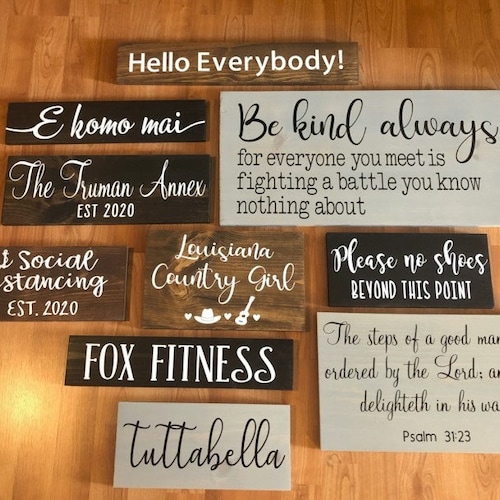 Hello Everybody!
E komo mai
Be kind always
for everyone you meet is
fighting a battle you know
nothing about
The Truman Annex
EST 2020
Social
stancing
EST. 2020
Louisiana
Country Girl
Please no shoes
BEYOND THIS POINT
FOX FITNESS
The steps of a good man
ordered by the Lord; an
delighteth in his wa
Psalm 31:23
tuttabella